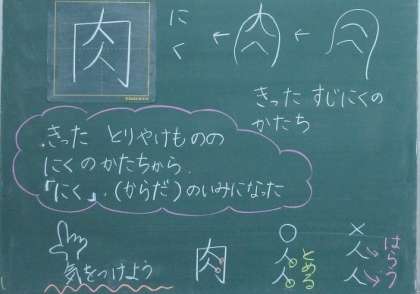 肉
にく
きった すじにくの
かたち
・きった とりやけものの
にくのかたちから
「にく」・(からだ)のいみになった
気をつけよう
肉
○
人
人
とめる
×
人
人
はらう